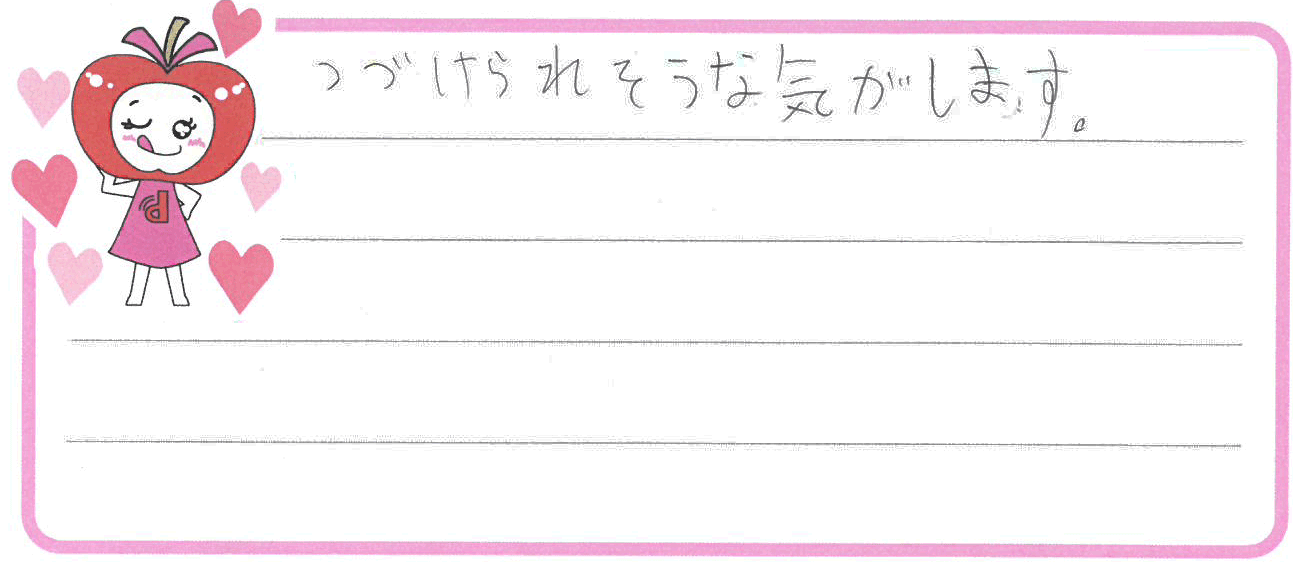 つづけられそうな気がします。